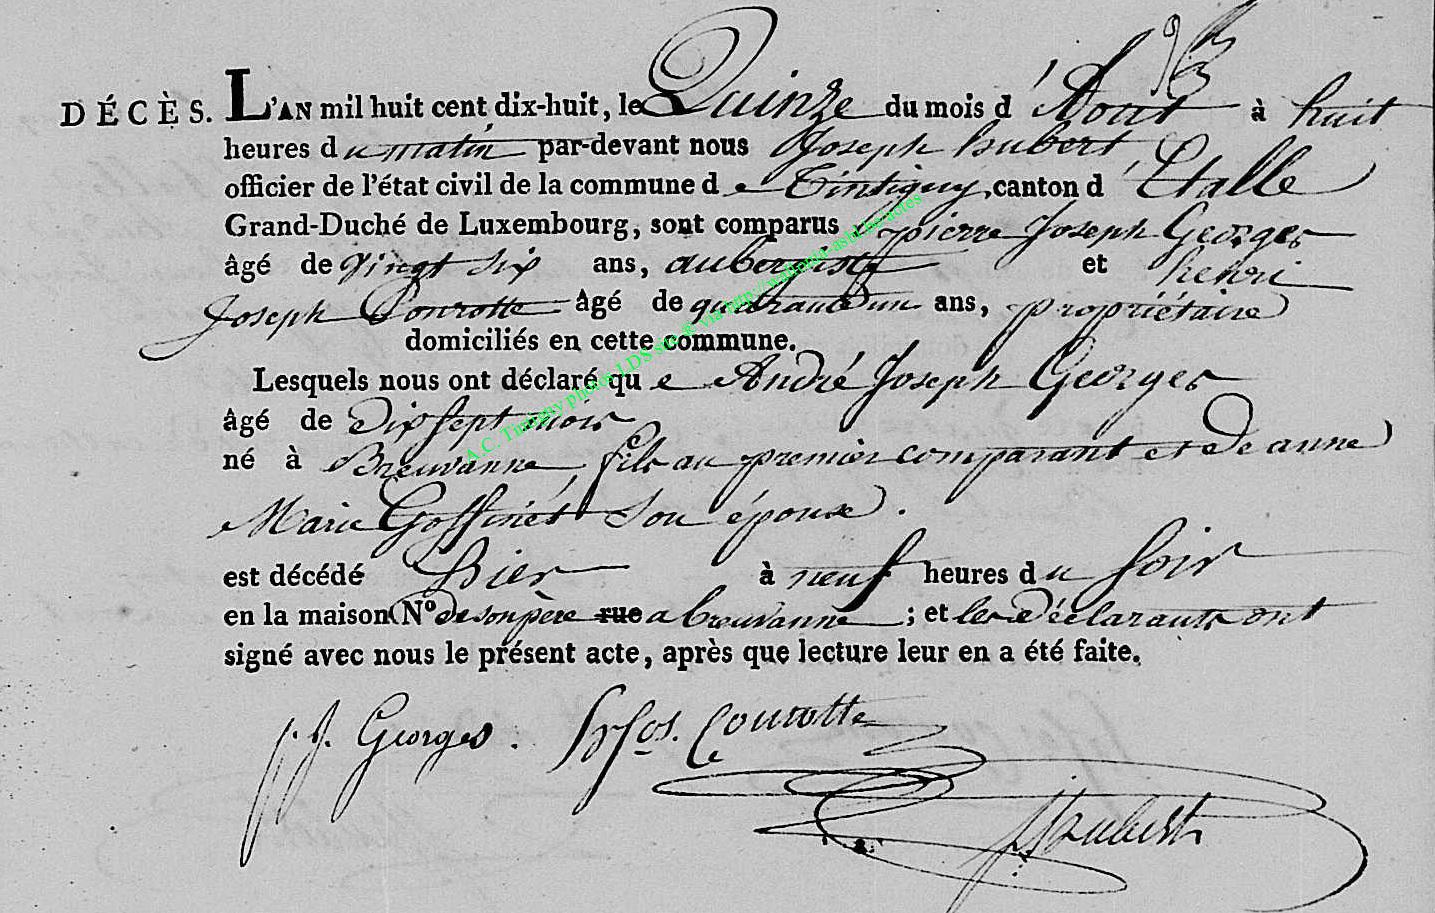 DÉCÈS. L'AN mil huit cent dix-huit, le Quinze du mois d'Aout à huit
heures du matin par-devant nous Joseph hubert
officier de l'état civil de la commune de Tintigny, canton d'Etalle
Grand-Duché de Luxembourg, sont comparus pierre Joseph Georges
âgé de vingt six ans, aubergiste et henri
Joseph Courotte âgé de quatrante un ans, propriétaire
domiciliés en cette commune.
Lesquels nous ont déclaré que André Joseph Georges
âgé de Dix sept mois
né à Breuvanne, fils au premier comparant et de anne
Marie Goffinet son épouse.
est décédé hier à neuf heures du soir
en la maison Nº de son père rue a breuvanne ; et les déclarants ont
signé avec nous le présent acte, après que lecture leur en a été faite.
p. j. Georges. Courotte
Hubert
A.C. Tintigny photos LDS site & via http://wallonia-asbl.be/actes